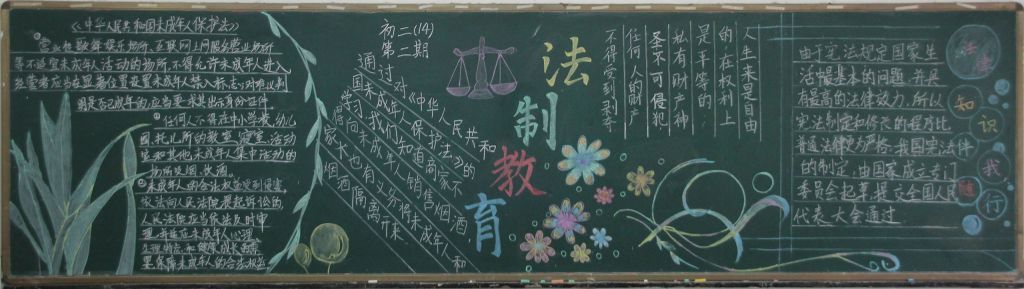 《中华人民共和国未成年人保护法》
①营业性歌舞娱乐场所、互联网上网服务营业场所
等不适宜未成年人活动的场所,不得允许未成年人进入
经营者应当在显著位置设置未成年人禁入标志;对难以判
明是否已成年的,应当要求其出示身份证件。
②任何人不得在中小学校、幼儿
园、托儿所的教室、寝室、活动
室和其他未成年人集中活动的
场所吸烟、饮酒。
③未成年人的合法权益受到侵害,
依法向人民法院提起诉讼的
人民法院应当依法及时审
理,并适应未成年人心理
生理特点和健康成长的需
要,保障未成年人的合法权益
初二(14)
第二期
通过对《中华人民共和
国未成年人保护法》的
学习,我们知道商家不
得向未成年人销售烟酒
家长也有义务将未成年人和
烟酒隔离开来.
法制教育
人生来是自由
的,在权利上
是平等的.
私有财产神
圣不可侵犯
任何人的财产
不得受到剥夺
由于宪法规定国家生
活中最基本的问题,并具
有最高的法律效力,所以
宪法制定和修改的程序比
普通法律更为严格.我国宪法
的制定,由国家成立专门
委员会起草,提交全国人民
代表大会通过
法律知识伴我随行